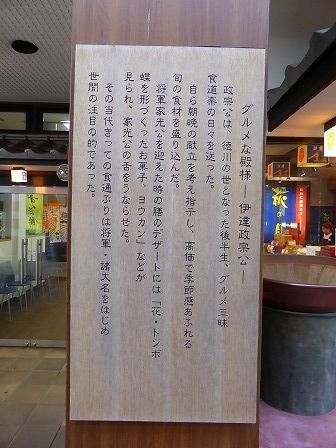 グルメな殿様 ― 伊達政宗公
政宗公は、徳川の世となった後半生、グルメ三昧
食道楽の日々を送った。
自ら朝晩の献立を考え指示し、高価で季節感あふれる
旬の食材を盛り込んだ。
将軍家光公を迎えた時の膳のデザートには「花・トンボ
蝶を形づくったお菓子、ヨウカン」などが
見られ、家光公の舌をうならせた。
その当代きっての食通ぶりは将軍・諸大名をはじめ
世間の注目の的であった。
萩の月